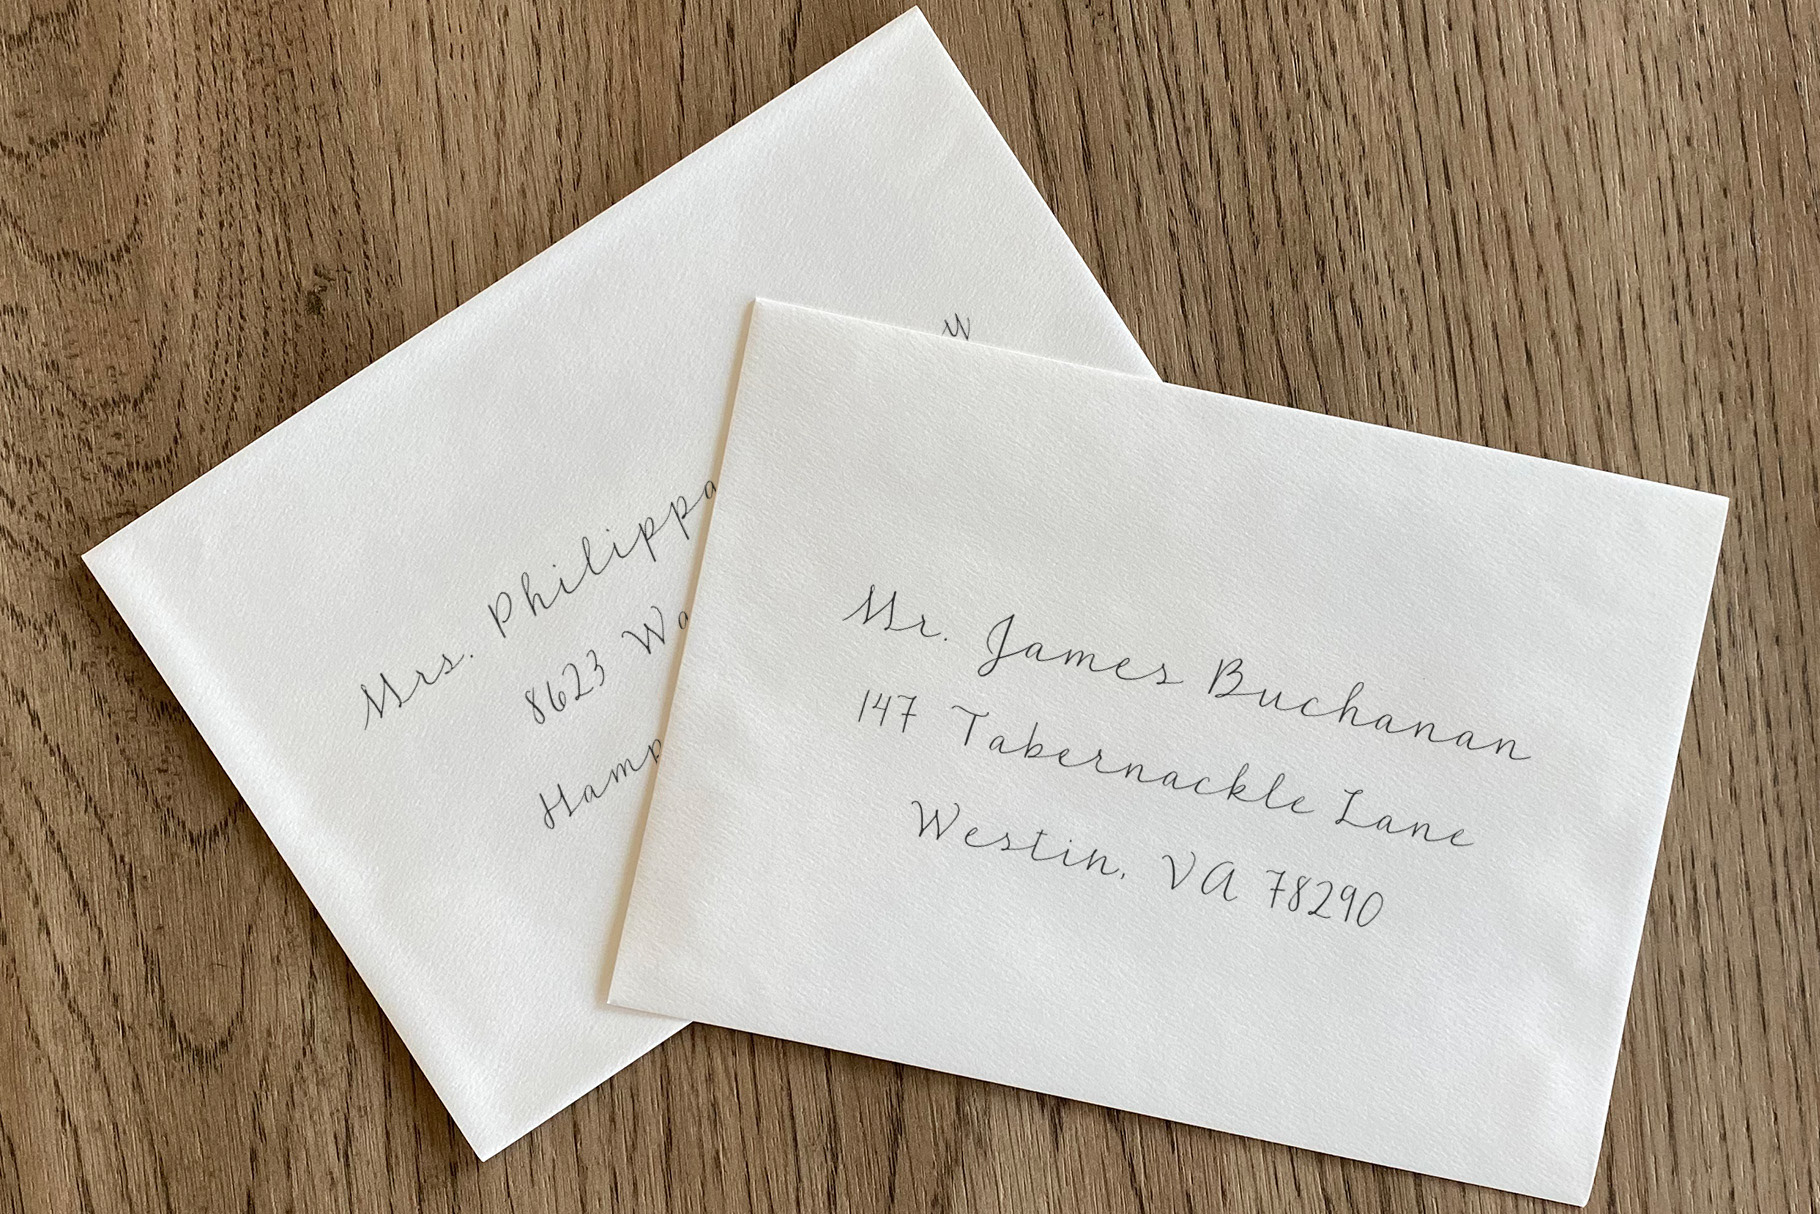 Mrs. Philippa
8623
Mr. James Buchanan
147 Tabernackle Lane
Westin, VA 78290